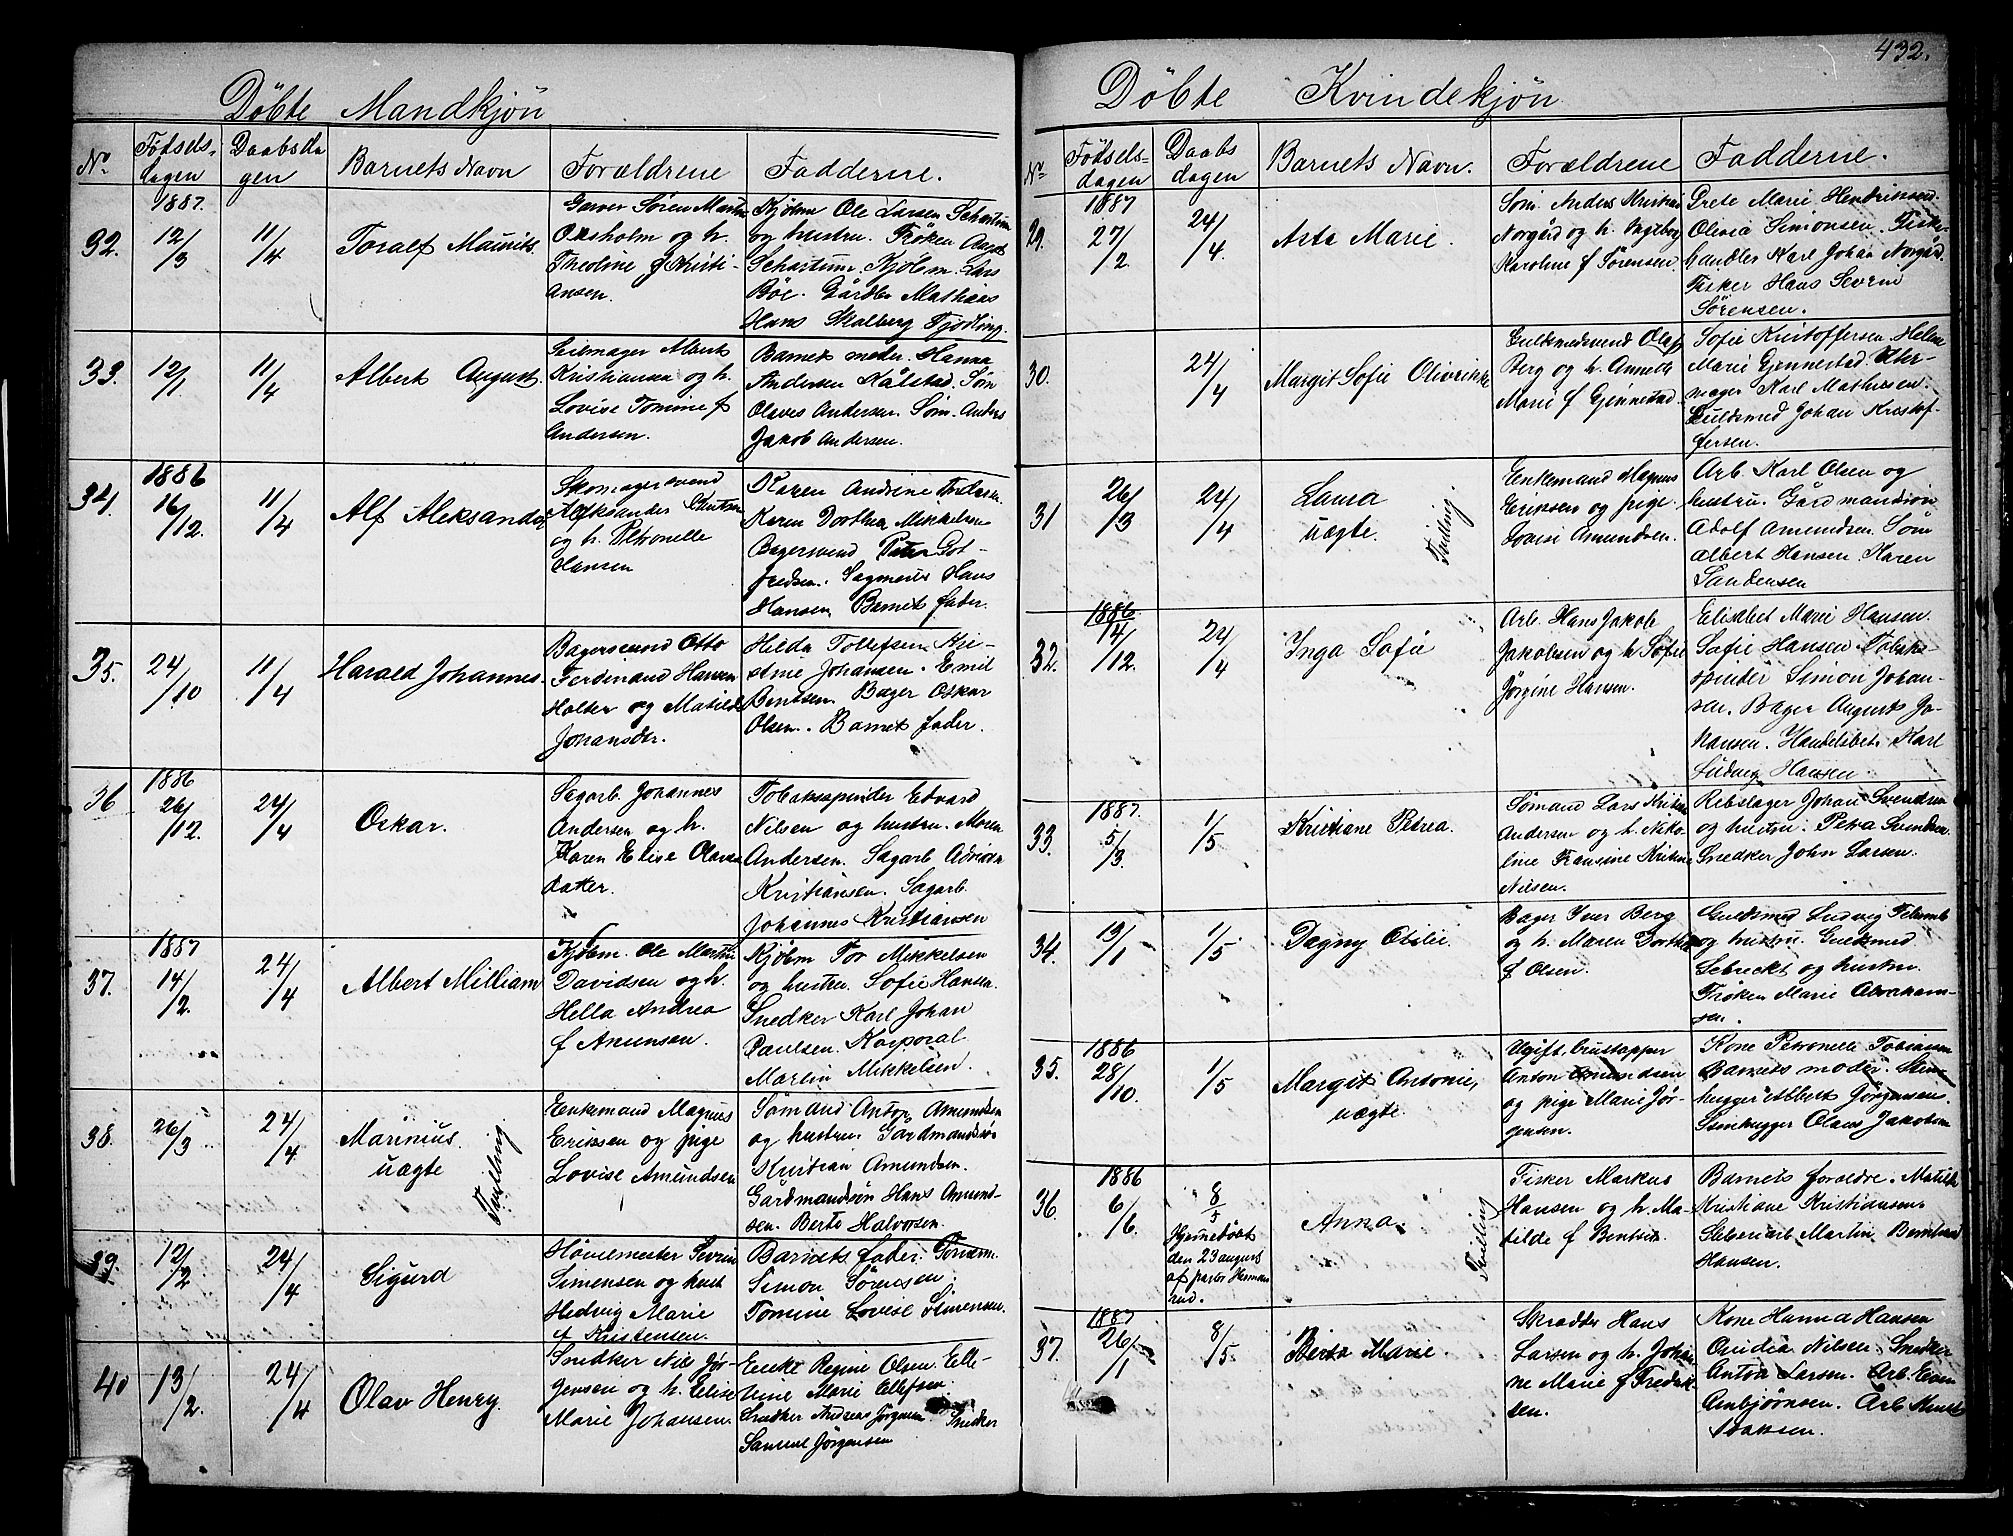 432.
Döbte Mandkjön
No
Födsels-
dagen
Daabsda
gen
Barnets Navn
Forældrene
Fadderne.
1887.
32.
12/3
11/4
Toralf Maurits.
Garver Sören Martin
Oxsholm og h.
Theoline f Kristi-
Ansen.
Kjöbm Ole Larsen Schartum
og hustru. Fröken Aagot
Schartum. Kjöbm. Lars
Böe. Gårdbr Mathias
Hans Skalberg Fjodling.
33.
12/1
11/4
Albert August.
Seilmager Albert
Kristiansen og h.
Lovise Tomine f
Andersen.
Barnets moder. Hanna
Andersen Kålstad. Söm
Olaves Andersen. Söm. Andres
Jakob Andersen.
34.
1886
16/12.
11/4
Alf Aleksander
Skomagersvend
Aleksander Knutsen
og h. Petronelle
Hansen
Karen Andrine Andersen
Karen Dorthea Mikkelsen
Bagersvend Peter Got-
fredsen. Sagmester Hans
Hansen. Barnets fader.
35.
24/10
11/4
Harald Johannes.
Bagersvend Otto
Ferdinand Hansen
Holter og Matilde
Johansdr.
Hilda Tollefsen. Kri-
stine Johansen. Emil
Berntsen. Bager Oskar
Olsen. Barnets fader.
36
1886
26/12.
24/4
Oskar.
Sagarb. Johannes
Andersen og h.
Karen Elise Olaves
datter.
Tobaksspinder Edvard
Nilsen og hustru. Maren
Andersen. Sagarb Adrian
Kristiansen. Sagarb.
Johannes Kristiansen
37.
1887
14/2.
24/4
Albert Milliam
Kjöbm. Ole Martin
Davidsen og h.
Hella Andrea
f Amunsen.
Kjöbm Tor Mikkelsen
og hustru. Sofie Hansen.
Snedker Karl Johan
Paulsen. Korporal
Martin Mikkelsen.
38.
26/3
24/4
Marinius.
uægte
Tvilling.
Enkemand Magnus
Eriksen og pige
Lovise Amundsen
Sömand Anton Amundsen
og hustru. Gårdmandsön
Kristian Amundsen.
Gårdmandsön Hans Amund-
sen. Berte Halvorsen.
39.
12/2
24/4
Sigurd
Hövlemester Sevrin
Simensen og hust
Hedvig Marie
f Kristensen.
Barnets fader. Tömm.
Simon Sörensen.
Tomine Lovise Simensen.
40
13/2.
24/4
Olav Henry.
Snedker Nils Jör-
gensen og h. Elise
Marie Johansen.
Enke Regine Olsen. Elle-
vine Marie Ellefsen.
Snedker Andreas Jörgensen. Snedker
Samuel Jörgensen
Döbte Kvindekjön
No
Födsels-
dagen
Daabs
dagen
Barnets Navn.
Forældrene
Fadderne.
29.
1887
27/2.
24/4.
Asta Marie.
Söm. Anders Kristian
Norgård og h. Ingeborg
Karoline f Sörensen.
Grete Marie Hendriksen.
Olivia Simonsen. Fiske-
handler Karl Johan Norgård.
Fisker Hans Sevrin
Sörensen.
30.
24/4
Margit Sofie Olivrikke
Guldsmedsvend Olaf
Berg og h. Annede
Marie f Gjennestad.
Sofie Kristoffersen. Helene
Marie Gjennestad. Uhr-
mager Karl Mathisen.
Guldsmed Johan Kristof-
fersen.
31
26/3
24/4
Laura
uægte.
Tvilling
Enkemand Magnus
Eriksen og pige
Lovise Amundsen.
Arb. Karl Olsen og
hustru. Gårdmandsön
Adolf Amundsen. Söm
Albert Hansen. Karen
Sandersen
32.
1886
14/12.
24/4
Inga Sofie
Arb. Hans Jakob
Jakobsen og h Sofie
Jörgine Hansen.
Elisabet Marie Hansen.
Sofie Hansen. Tobaks-
spinder Simon Johan-
sen. Bager August Jo-
hansen. Handelsbet. Karl
Ludvig Hansen.
33.
1887.
5/3.
1/5
Kristiane Petrea.
Sömand Lars Kristian
Andersen og h. Niko-
line Fransine Kristine
Nilsen.
Rebslager Johan Svendsen
og hustru. Petra Svendsen
Snedker John Larsen.
34.
19/1
1/5
Dagny Otilie.
Bager Iver Berg
og h. Maren Dorthea
f Olsen.
Guldsmed Ludvig
og hustru. Guldsmed
og hustru.
Fröken Marie Abraham-
sen.
35.
1886
28/10.
1/5
Margit Antonie,
uægte.
Ugift, brustapper
Anton Amundsen
og pige Marie Jör-
gensen.
Kone Petronelle Tobiassen
Barnets moder. Sten-
hugger Albert Jörgensen.
Stenhugger Olaus Jakobsen
36.
1886
6/6
8/5
Hjemmedöbt
den 23 august
af pastor Herman
rud.
Anna.
Tvilling
Fisker Markus
Hansen og h. Ma-
tilde f Bentsen.
Barnets foreldre. Matilde
Kristiane Kristiansen.
Sliberiarb. Martin Berntsen
Hansen.
37.
1887
26/1
8/5.
Berta Marie.
Skrædder Hans
Larsen og h. Johan
ne Marie f Fredrik-
sen.
Kone Hanna Hansen
Ovidia Nilsen. Snedker
Anton Larsen. Arb. Even
Anbjörnsen. Arb Knut
Isaksen.